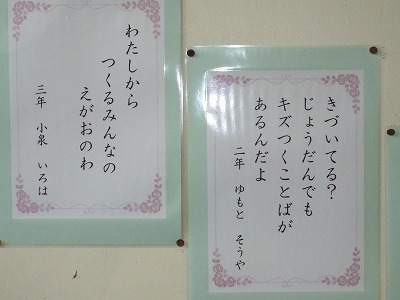 わたしから
つくるみんなの
えがおのわ
三年 小泉 いろは
きづいてる?
じょうだんでも
キズつくことばが
あるんだよ
二年 ゆもと そうや